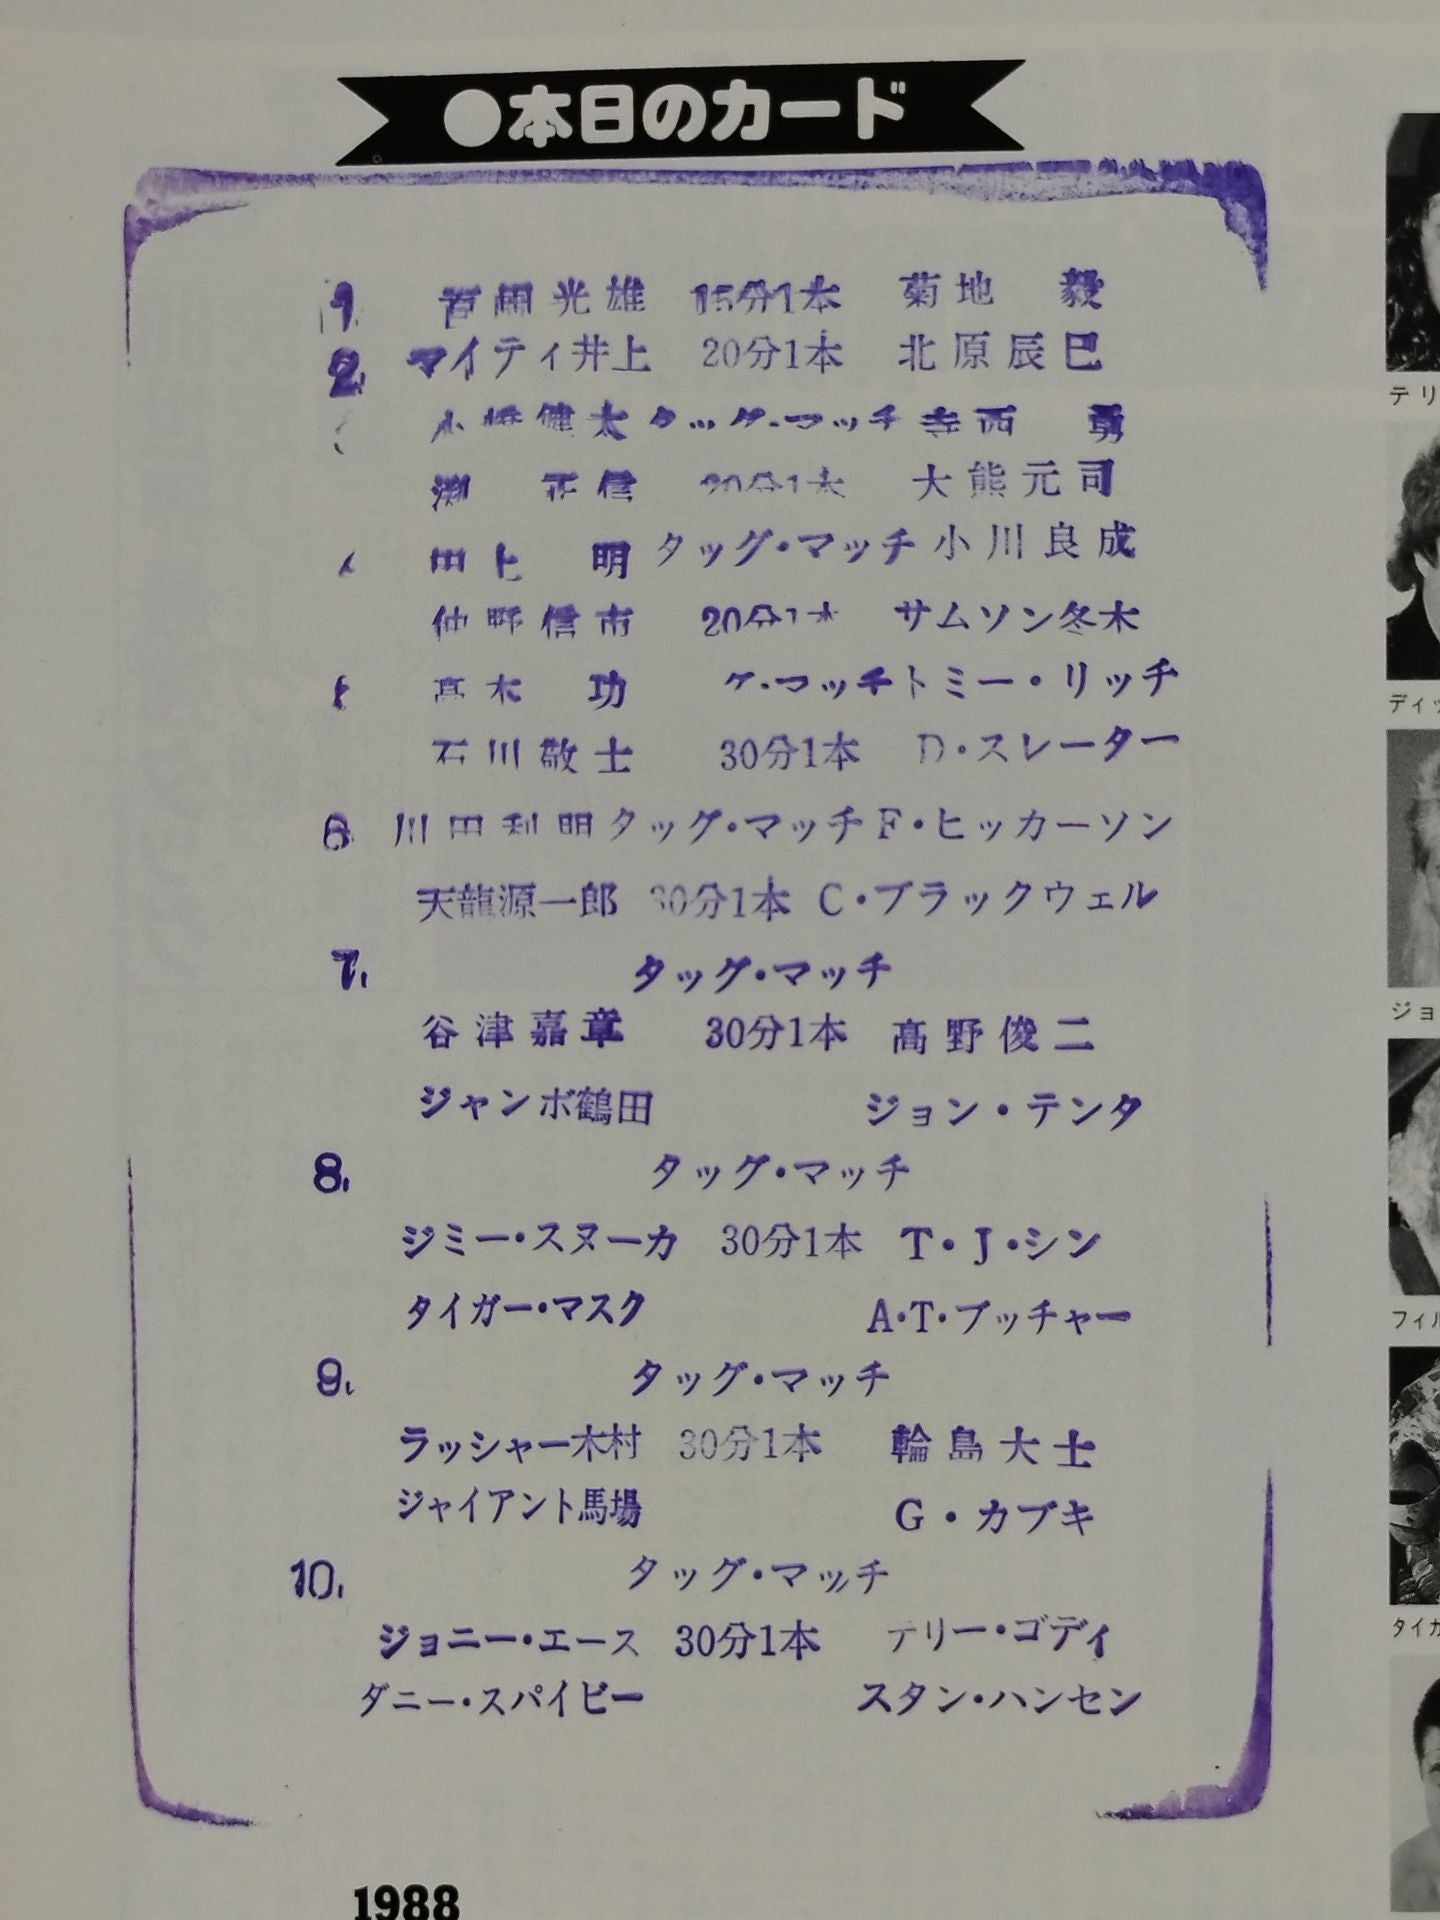 ●本日のカード
1. 百田光雄 15分1本 菊地 毅
2. マイティ井上 20分1本 北原辰巳
小橋健太 タッグ・マッチ 寺西 勇
渕 正信 20分1本 大熊元司
田上 明 タッグ・マッチ 小川良成
仲野信市 20分1本 サムソン冬木
高木 功 グ・マッチ トミー・リッチ
石川敬士 30分1本 D・スレーター
6. 川田利明 タッグ・マッチ F・ヒッカーソン
天龍源一郎 30分1本 C・ブラックウェル
7. タッグ・マッチ
谷津嘉章 30分1本 髙野俊二
ジャンボ鶴田 ジョン・テンタ
8. タッグ・マッチ
ジミー・スヌーカ 30分1本 T・J・シン
タイガー・マスク A・T・ブッチャー
9. タッグ・マッチ
ラッシャー木村 30分1本 輪島大士
ジャイアント馬場 G・カブキ
10. タッグ・マッチ
ジョニー・エース 30分1本 テリー・ゴディ
ダニー・スパイビー スタン・ハンセン
1988
テリ
ディッ
ジョ
フィル
タイガ